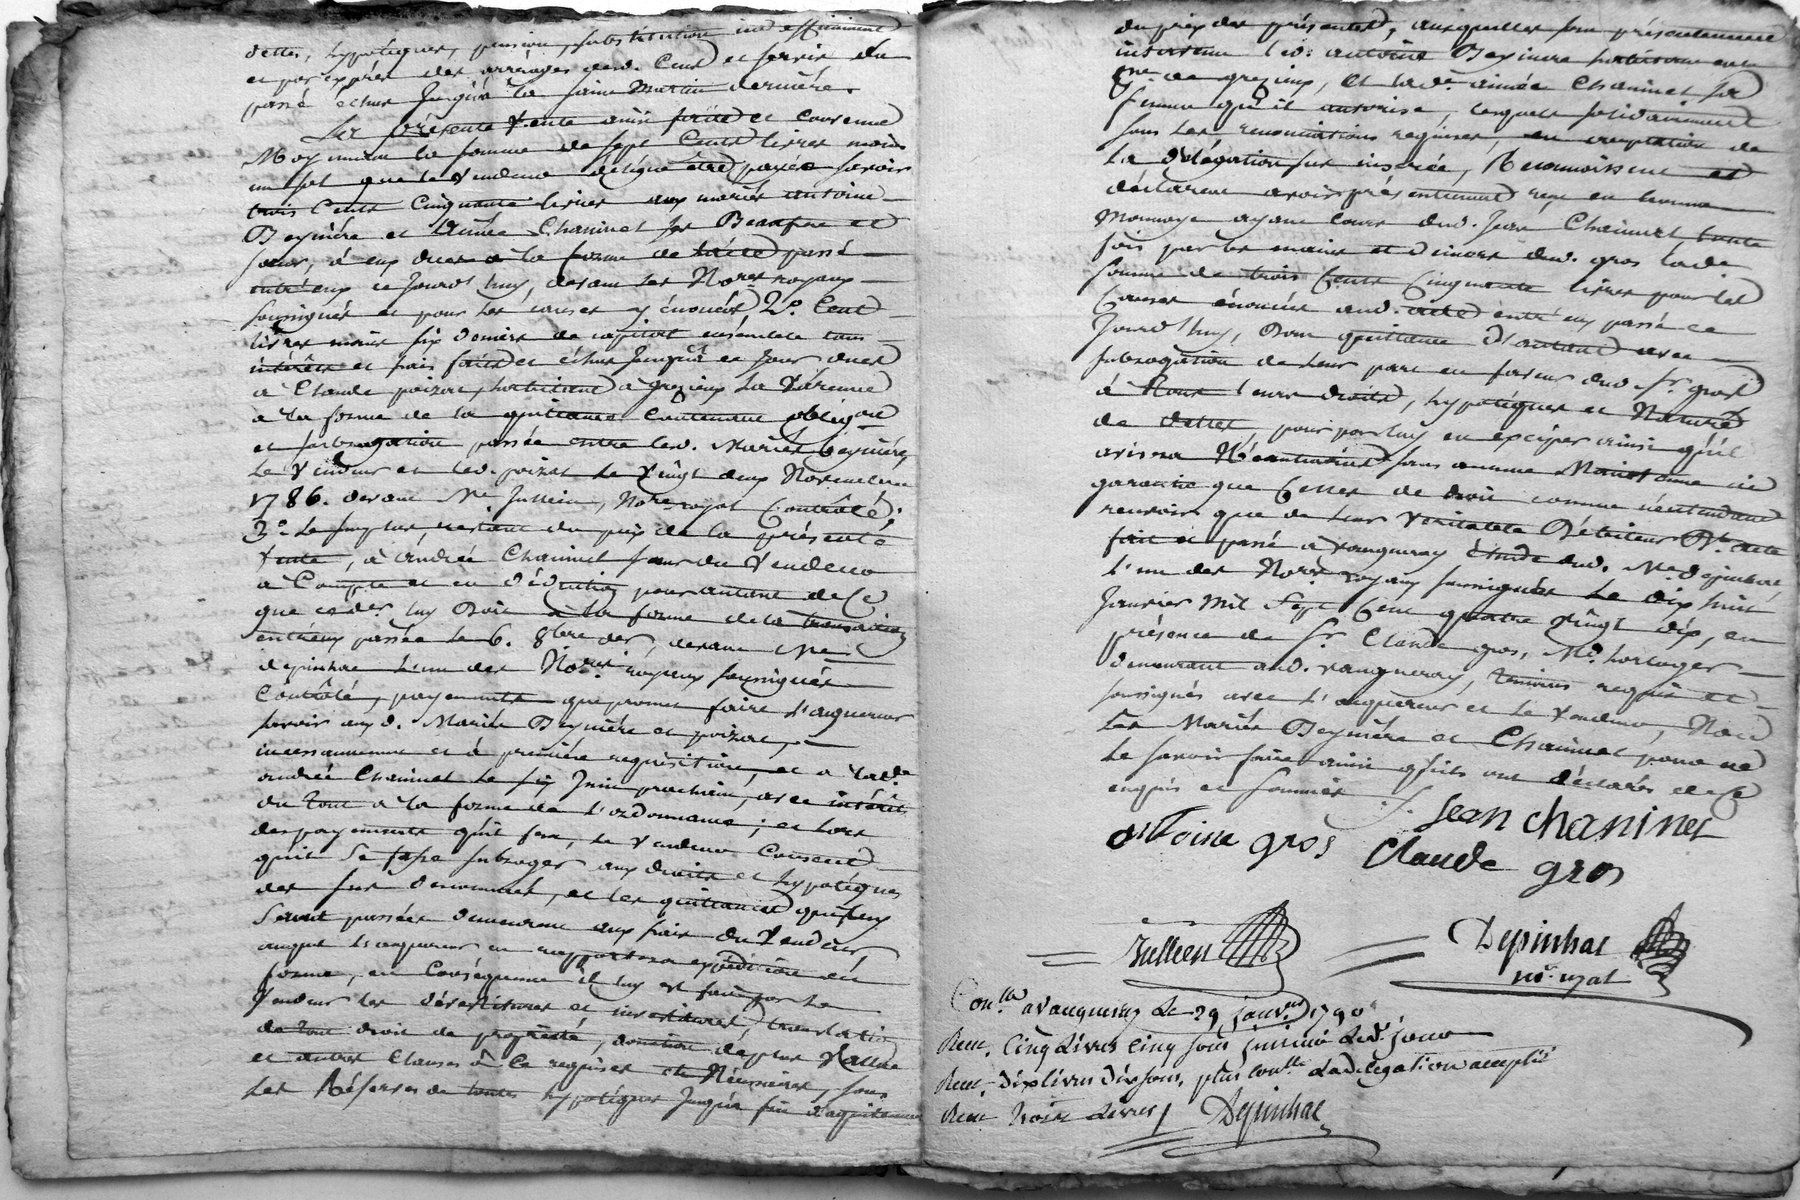 dettes, hypoteques, pension, substitution indefiniment
et par exprès des arrérages desd. Cens et servis du
passé échus jusqu'à la saint Martin dernière.
La présente Vente ainsi faite et convenue
Moyennant la somme de sept Cents livres moins
un sol que le Vendeur délègue être payée savoir
trois Cents Cinquante livres aux mariés antoine
Beymére et Aimée Chaninet ses Beaufrere et
soeur, à eux dues à la forme de l'acte passé
entr'eux ce Jourd'huy, devant les No.res royaux
soussignés et pour les causes y énoncées, 2.° Cent
livres moins six deniers de capital ensemble tous
intérêts et frais faits et échus jusqu'à ce Jour dues
à Claude poizat, habitant à grezieux la Varenne
à la forme de la quittance Contenant oblig.on
et subrogation passée entre lesd. Mariés Beymére,
le Vendeur et led. poizat le Vingt deux Novembre
1786. devant Me Jullien, No.re royal Contrôlé;
3.° Le surplus, restant du prix de la présente
Vente, à andrée Chaninet soeur du Vendeur
à Compte et en déduction pour autant de Ce
que ce der. luy Doit à la forme de la transaction
entr'eux passée le 6. 8bre der, devant Me
depinhac l'un des No.res royaux soussignés
Contrôlé, payements que promet faire l'acquereur
savoir auxd. Mariés Beymére et poizat,
incessamment et à première requisition, et à lad.
andrée Chaninet le six Juin prochain, avec intérêt
du tout à la forme de l'ordonnance; et lors
des payements qu'il fera, le Vendeur Consent
qu'il se fasse subroger aux droits et hypotéques
des sus denommés, et les quittances qui luy
seront passées demeurent aux frais du Vendeur,
auquel l'acquereur en rapportera expédition en
forme, en Conséquence il luy est fait par le
Vendeur les dévestitures et investitures, translation
de tout droit de propriété, donation de plus Value
et autres Clauses à Ce requises et Nécessaires, sous
les Réserves de toutes hypotéques jusqu'à fin d'acquitement
du prix des présentes, auxquelles sont présentement
intervenu led. antoine Beymere habitant en la
p.sse de grezieux, et lad.e aimée Chaninet sa
femme qu'il autorise, lesquels solidairement
sous les renonciations requises, en acceptation de
la délégation sus inserée, Reconnoissent et
déclarent avoir présentement reçu en bonne
Monnoye ayant cours dud. Jean Chaninet toute
fois par les mains et deniers dud. gros lad.e
somme de trois Cents Cinquante livres pour les
Causes énoncées aud. acte entr'eux passé ce
Jourd'huy, Dont quittance d'autant avec
subrogation de leur part en faveur dud. Sr. gros
à tous leurs droits, hypotéques et Nature
de dettes, pour par luy en exciper ainsi qu'il
avisera Néantmoins sans aucune Maintenue ni
garantie que Celles de droit comme n'entendant
recevoir que de leur veritable Débiteur Dt. acte
fait et passé à Vaugneray étude dud. Me Depinhac
l'un des No.res royaux soussignés le dix huit
Janvier Mil Sept Cent quatre Vingt dix, en
présence de Sr. Claude gros, Md. horloger
demeurant aud. Vaugneray, temoins requis et
soussignés avec l'acquereur et le Vendeur, Non
les Mariés Beymére et Chaninet pour ne
le savoir faire ainsi qu'ils ont déclaré de Ce
enquis et sommés
Jean Chaninet
antoine gros Claude gros
Jullien Depinhac
no.re royal
Con.lle a Vaugneray Le 29 janv.er 1790
Recu Cinq livres Cinq sous
Recu dix livres dix sous, plus Con.lle la delegation acceptée
Recu trois Livres Depinhac